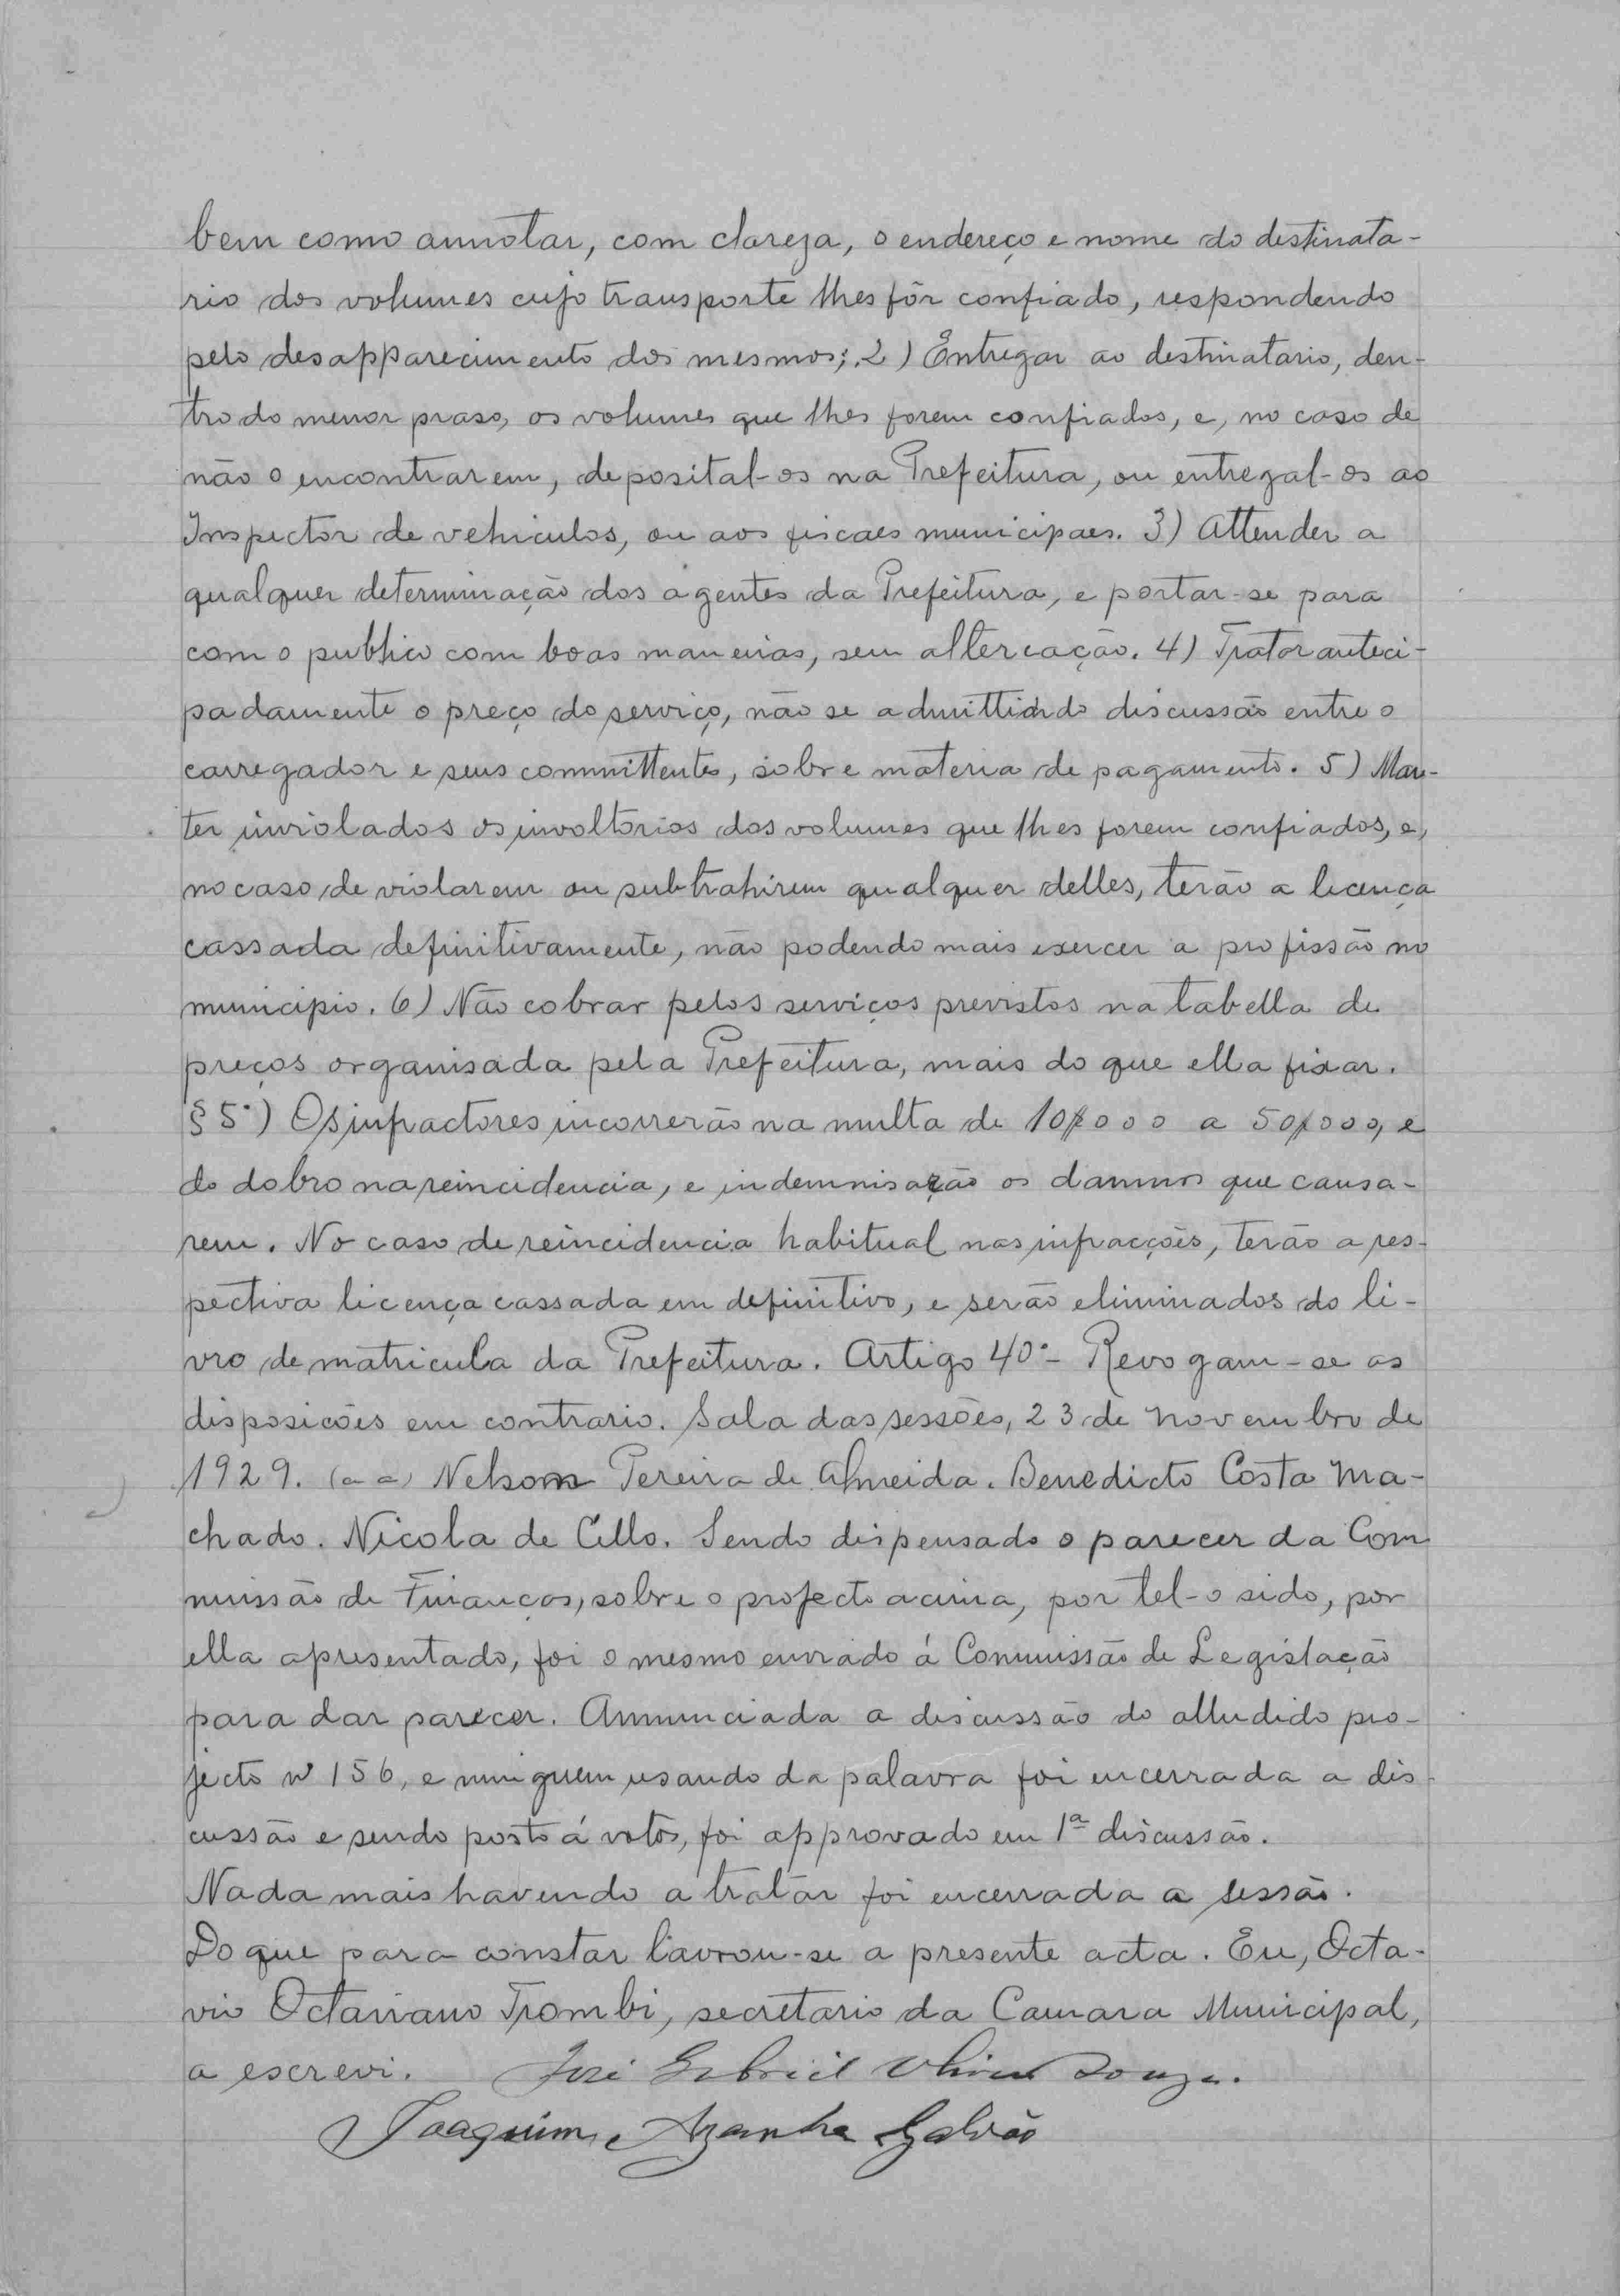 bem como annotar, com clareza, o endereço e nome do destinata-
rio dos volumes cujo transporte lhes fôr confiado, respondendo
pelo desapparecimento dos mesmos; 2) Entregar ao destinatario, den-
tro do menor praso, os volumes que lhes forem confiados, e, no caso de
não o encontrarem, deposital-os na Prefeitura, ou entregal-os ao
Inspector de vehiculos, ou aos fiscaes municipaes. 3) Attender a
qualquer determinação dos agentes da Prefeitura, e portar-se para
com o publico com boas maneiras, sem altercação. 4) Tratar anteci-
padamente o preço do serviço, não se admittindo discussão entre o
carregador e seus committentes, sobre materia de pagamento. 5) Man-
ter inviolados os involtorios dos volumes que lhes forem confiados, e,
no caso de violarem ou subtrahirem qualquer delles, terão a licença
cassada definitivamente, não podendo mais exercer a profissão no
municipio. 6) Não cobrar pelos serviços previstos na tabella de
preços organisada pela Prefeitura, mais do que ella fixar.
§ 5º) Os infractores incorrerão na multa de 10$000 a 50$000, e
do dobro na reincidencia, e indemnisarão os damnos que causa-
rem. No caso de reincidencia habitual nas infracções, terão a res-
pectiva licença cassada em definitivo, e serão eliminados do li-
vro de matricula da Prefeitura. Artigo 40º- Revogam-se as
disposicões em contrario. Sala das sessões, 23 de novembro de
1929. (a a) Nelson Pereira de Almeida. Benedicto Costa Ma-
chado. Nicola de Cillo. Sendo dispensado o parecer da Com
missão de Finanças, sobre o projecto acima, por tel-o sido, por
ella apresentado, foi o mesmo enviado á Commissão de Legislação
para dar parecer. Annunciada a discussão do alludido pro-
jecto nº 156, e ninguem usando da palavra foi encerrada a dis-
cussão e sendo posto á votos, foi approvado em 1ª discussão.
Nada mais havendo a tratar foi encerrada a sessão.
Do que para constar lavrou-se a presente acta. Eu, Octa-
vio Octaviano Trombi, secretario da Camara Municipal,
a escrevi. José Gabriel Souza.
Joaquim Azanha Galvão